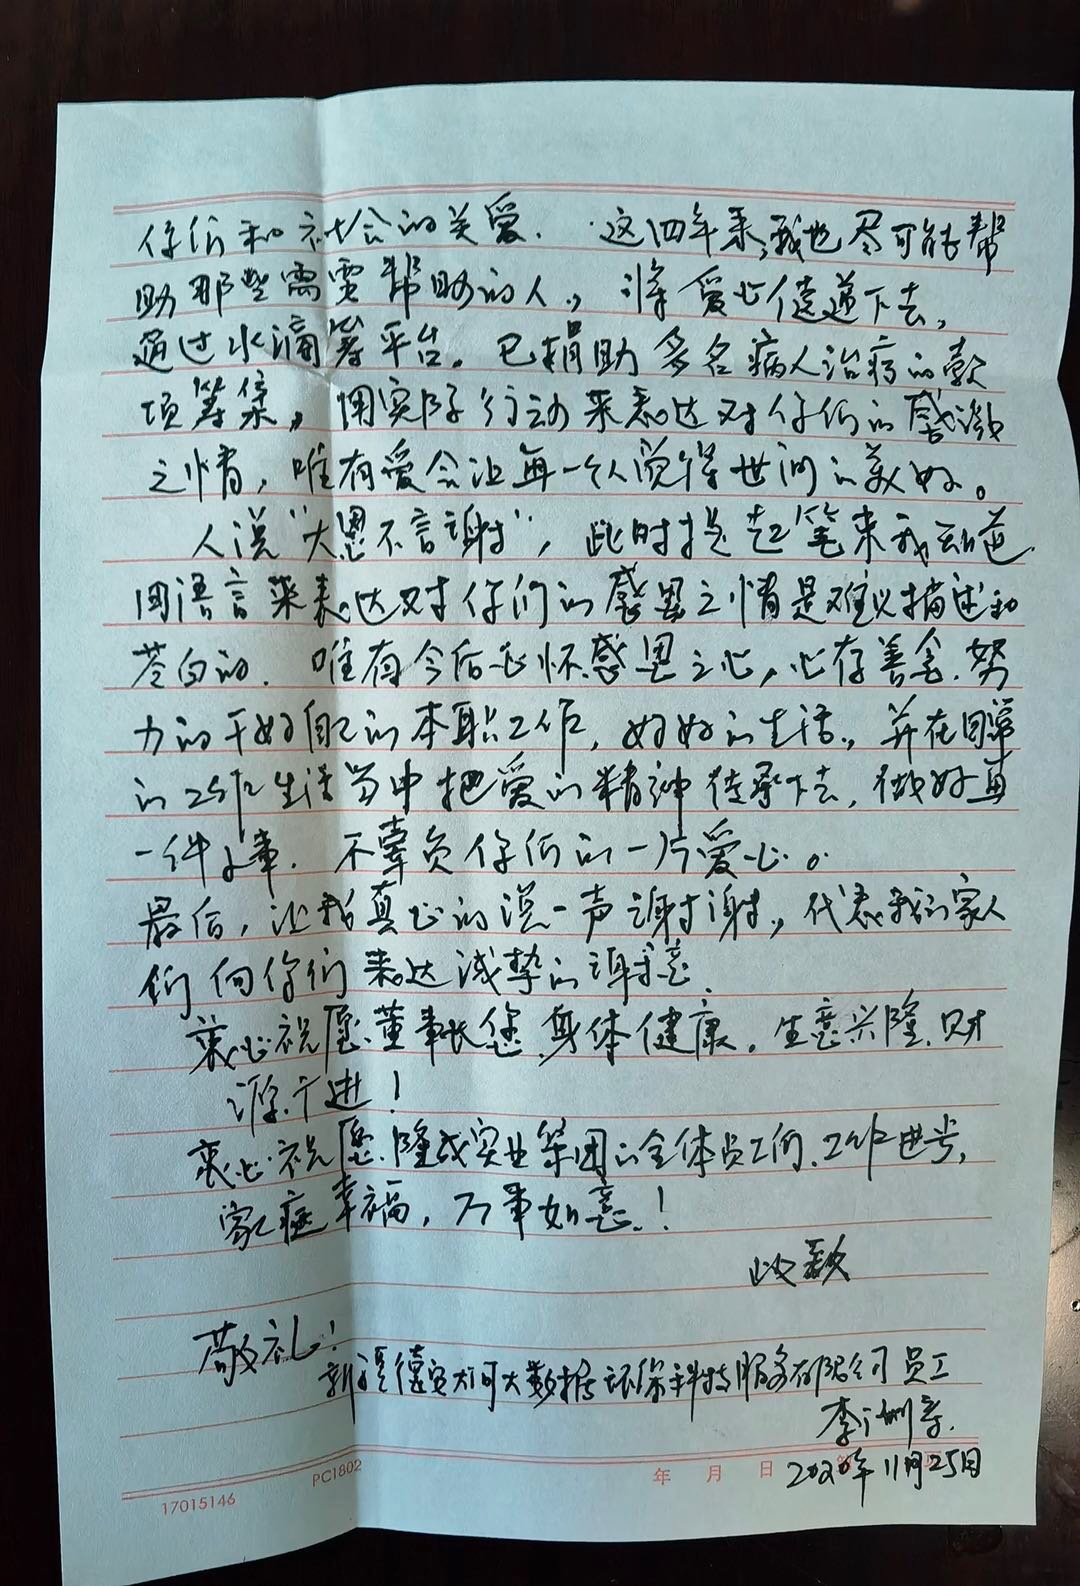 你们和社会的关爱. 这四年来,我也尽可能帮
助那些需要帮助的人, 将爱心传递下去,
通过水滴筹平台。已捐助多名病人治疗的款
项筹集, 用实际行动来表达对你们的感激
之情, 唯有爱会让每一个人觉得世间的美好。
人说"大恩不言谢", 此时提起笔来我知道
用语言来表达对你们的感恩之情是难以描述和
苍白的. 唯有今后心怀感恩之心, 心存善念. 努
力的干好自己的本职工作, 好好的生活, 并在日常
的工作生活当中把爱的精神传承下去, 做好每
一件小事. 不辜负你们的一片爱心。
最后, 让我真心的说一声谢谢, 代表我的家人
们向你们表达诚挚的谢意.
衷心祝愿董事长您身体健康. 生意兴隆. 财
源广进!
衷心祝愿隆成实业集团的全体员工们. 工作进步,
家庭幸福, 万事如意!
此致
敬礼!
新疆德安大数据环保科技服务有限公司员工
李
2020年11月25日
年 月 日
PC1802
17015146